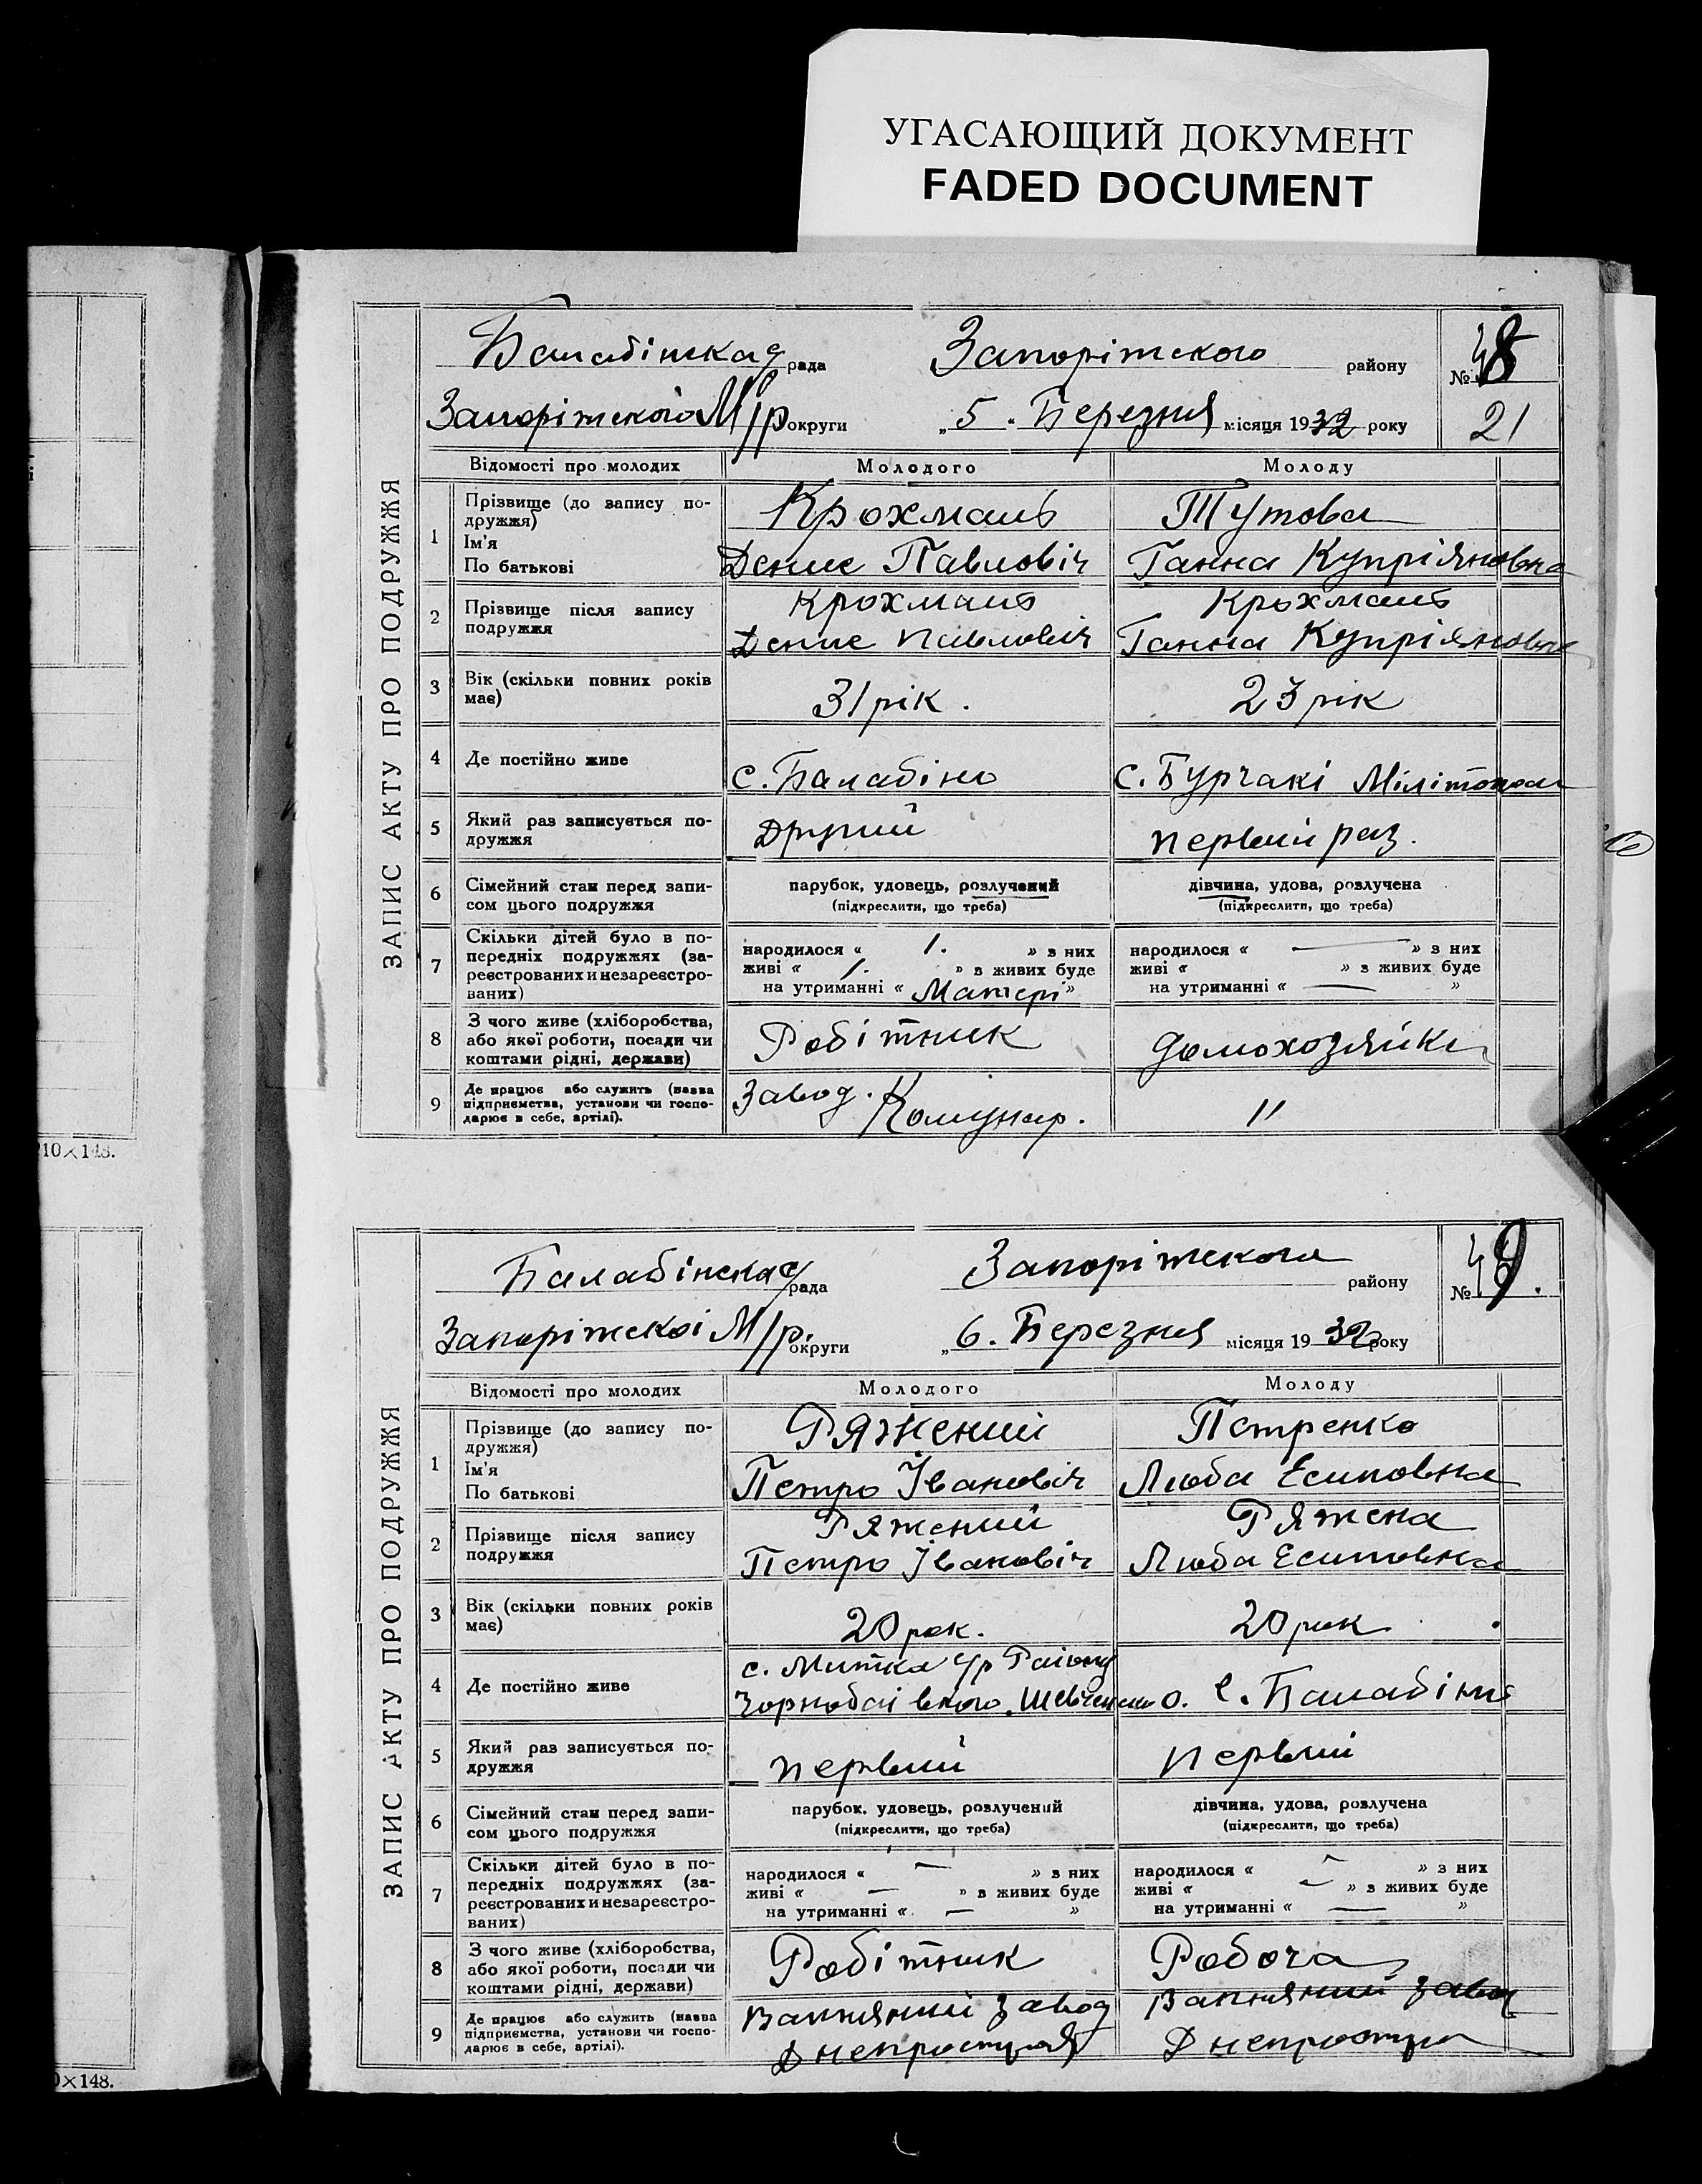 УГАСАЮЩИЙ ДОКУМЕНТ
FADED DOCUMENT
ЗАПИС АКТУ ПРО ПОДРУЖЖЯ
Балабінска с/рада Запоріжского району № 48
Запоріжского М/р округи „5. Березня місяця 1932 року 21
Відомості про молодих Молодого Молоду
1 Прізвище (до запису подружжя) Крохмаль Тутова
Ім'я
По батькові Денис Павловіч Ганна Купріяновна
2 Прізвище після запису подружжя Крохмаль Крохмаль
Денис Павловіч Ганна Купріяновна
3 Вік (скільки повних років має) 31 рік. 23 рік
4 Де постійно живе с. Балабіно с. Бурчакі Мілітополь
5 Який раз записується подружжя Другий первий раз.
6 Сімейний стан перед записом цього подружжя парубок, удовець, розлучений дівчина, удова, розлучена
(підкреслити, що треба) (підкреслити, що треба)
7 Скільки дітей було в попередніх подружжях (зареєстрованих и незареєстрованих) народилося « 1. » з них народилося « — » з них
живі « 1. » з живих буде живі « » з живих буде
на утриманні « Матері » на утриманні « — »
8 З чого живе (хліборобства, або якої роботи, посади чи коштами рідні, держави) Робітник домохозяйка
9 Де працює або служить (назва підприємства, установи чи господарює в себе, артілі). Завод. Комунар. "
10×148.
ЗАПИС АКТУ ПРО ПОДРУЖЖЯ
Балабінска с/рада Запоріжского району № 49.
Запоріжскоі М/р. округи „6. Березня місяця 1932 року
Відомості про молодих Молодого Молоду
1 Прізвище (до запису подружжя) Ряжений Петренко
Ім'я
По батькові Петро Івановіч Люба Есиповна
2 Прізвище після запису подружжя Ряжений Ряжена
Петро Івановіч Люба Есиповна
3 Вік (скільки повних років має) 20 рок. 20 рок
4 Де постійно живе с. Митка с/р Району
Чорнобаівского. с. Балабіно
5 Який раз записується подружжя первий первий
6 Сімейний стан перед записом цього подружжя парубок, удовець, розлучений дівчина, удова, розлучена
(підкреслити, що треба) (підкреслити, що треба)
7 Скільки дітей було в попередніх подружжях (зареєстрованих и незареєстрованих) народилося « — » з них народилося « — » з них
живі « — » з живих буде живі « — » з живих буде
на утриманні « — » на утриманні « — »
8 З чого живе (хліборобства, або якої роботи, посади чи коштами рідні, держави) Робітник Робоча
9 Де працює або служить (назва підприємства, установи чи господарює в себе, артілі). Вапняний завод Вапняний завод
Днепрострой Днепростро
0×148.